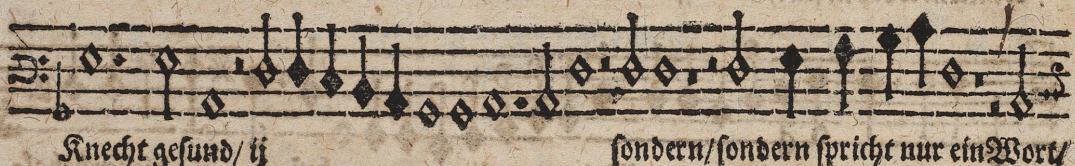 Knecht gesund/ ij sondern/ sondern spricht nur ein Wort/